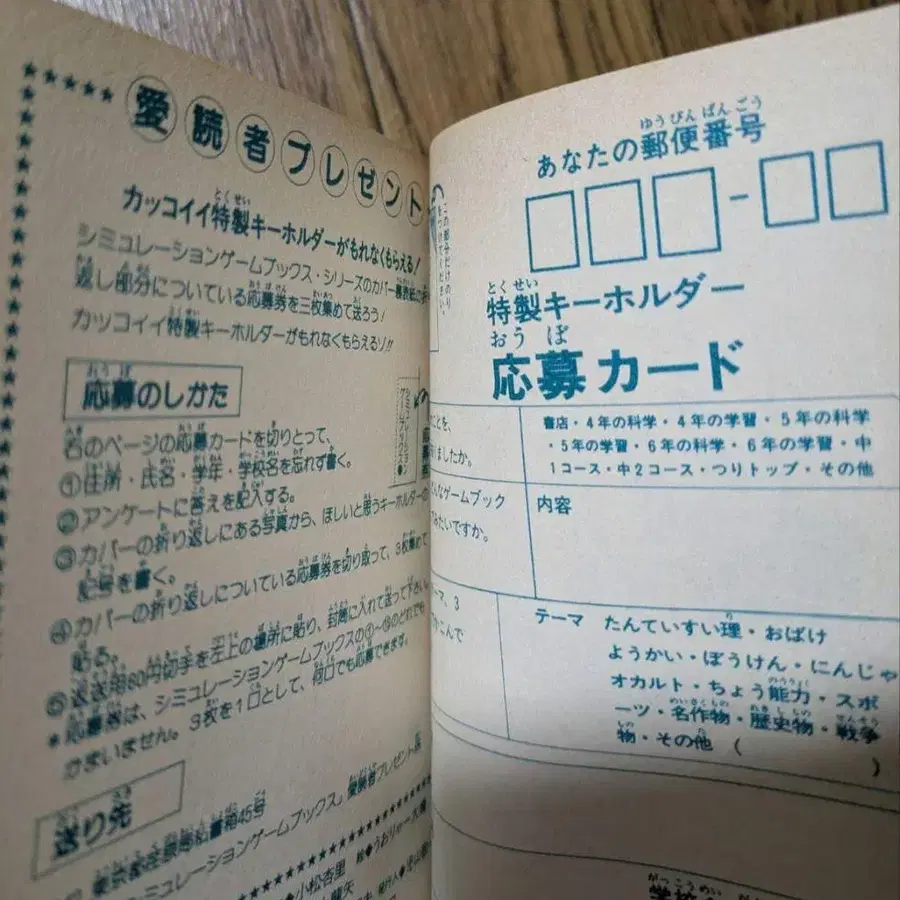 愛読者プレゼント
カッコイイ特製キーホルダーがもれなくもらえる!
シミュレーションゲームブックス・シリーズのカバー裏表紙の折
返し部分についている応募券を三枚集めて送ろう!
カッコイイ特製キーホルダーがもれなくもらえるゾ!!
応募のしかた
右のページの応募カードを切りとって、
①住所・氏名・学年・学校名を忘れず書く。
②アンケートに答えを記入する。
③カバーの折り返しにある写真から、ほしいと思うキーホルダーの
記号を書く。
④カバーの折り返しについている応募券を切り取って、3枚集めて
貼る。
⑤返送用60円切手を左上の場所に貼り、封筒に入れて送って下さい。
*応募券は、シミュレーションゲームブックスの①~⑯のどれでも
かまいません。3枚を1口として、何口でも応募できます。
送り先
シミュレーションゲームブックス、愛読者プレゼント係
小松杏里
ゆうびんばんごう
あなたの郵便番号
とくせい
特製キーホルダー
おうぼ
応募カード
ことを、
りましたか。
書店・4年の科学・4年の学習・5年の科学
・5年の学習・6年の科学・6年の学習・中
1コース・中2コース・つりトップ・その他
んなゲームブック
てみたいですか。
内容
ーマ、3
かこんで
テーマ たんていすい理・おばけ
ようかい・ぼうけん・にんじゃ
オカルト・ちょう能力・スポ
ーツ・名作物・歴史物・戦争
物・その他 ( )
がっこうめい